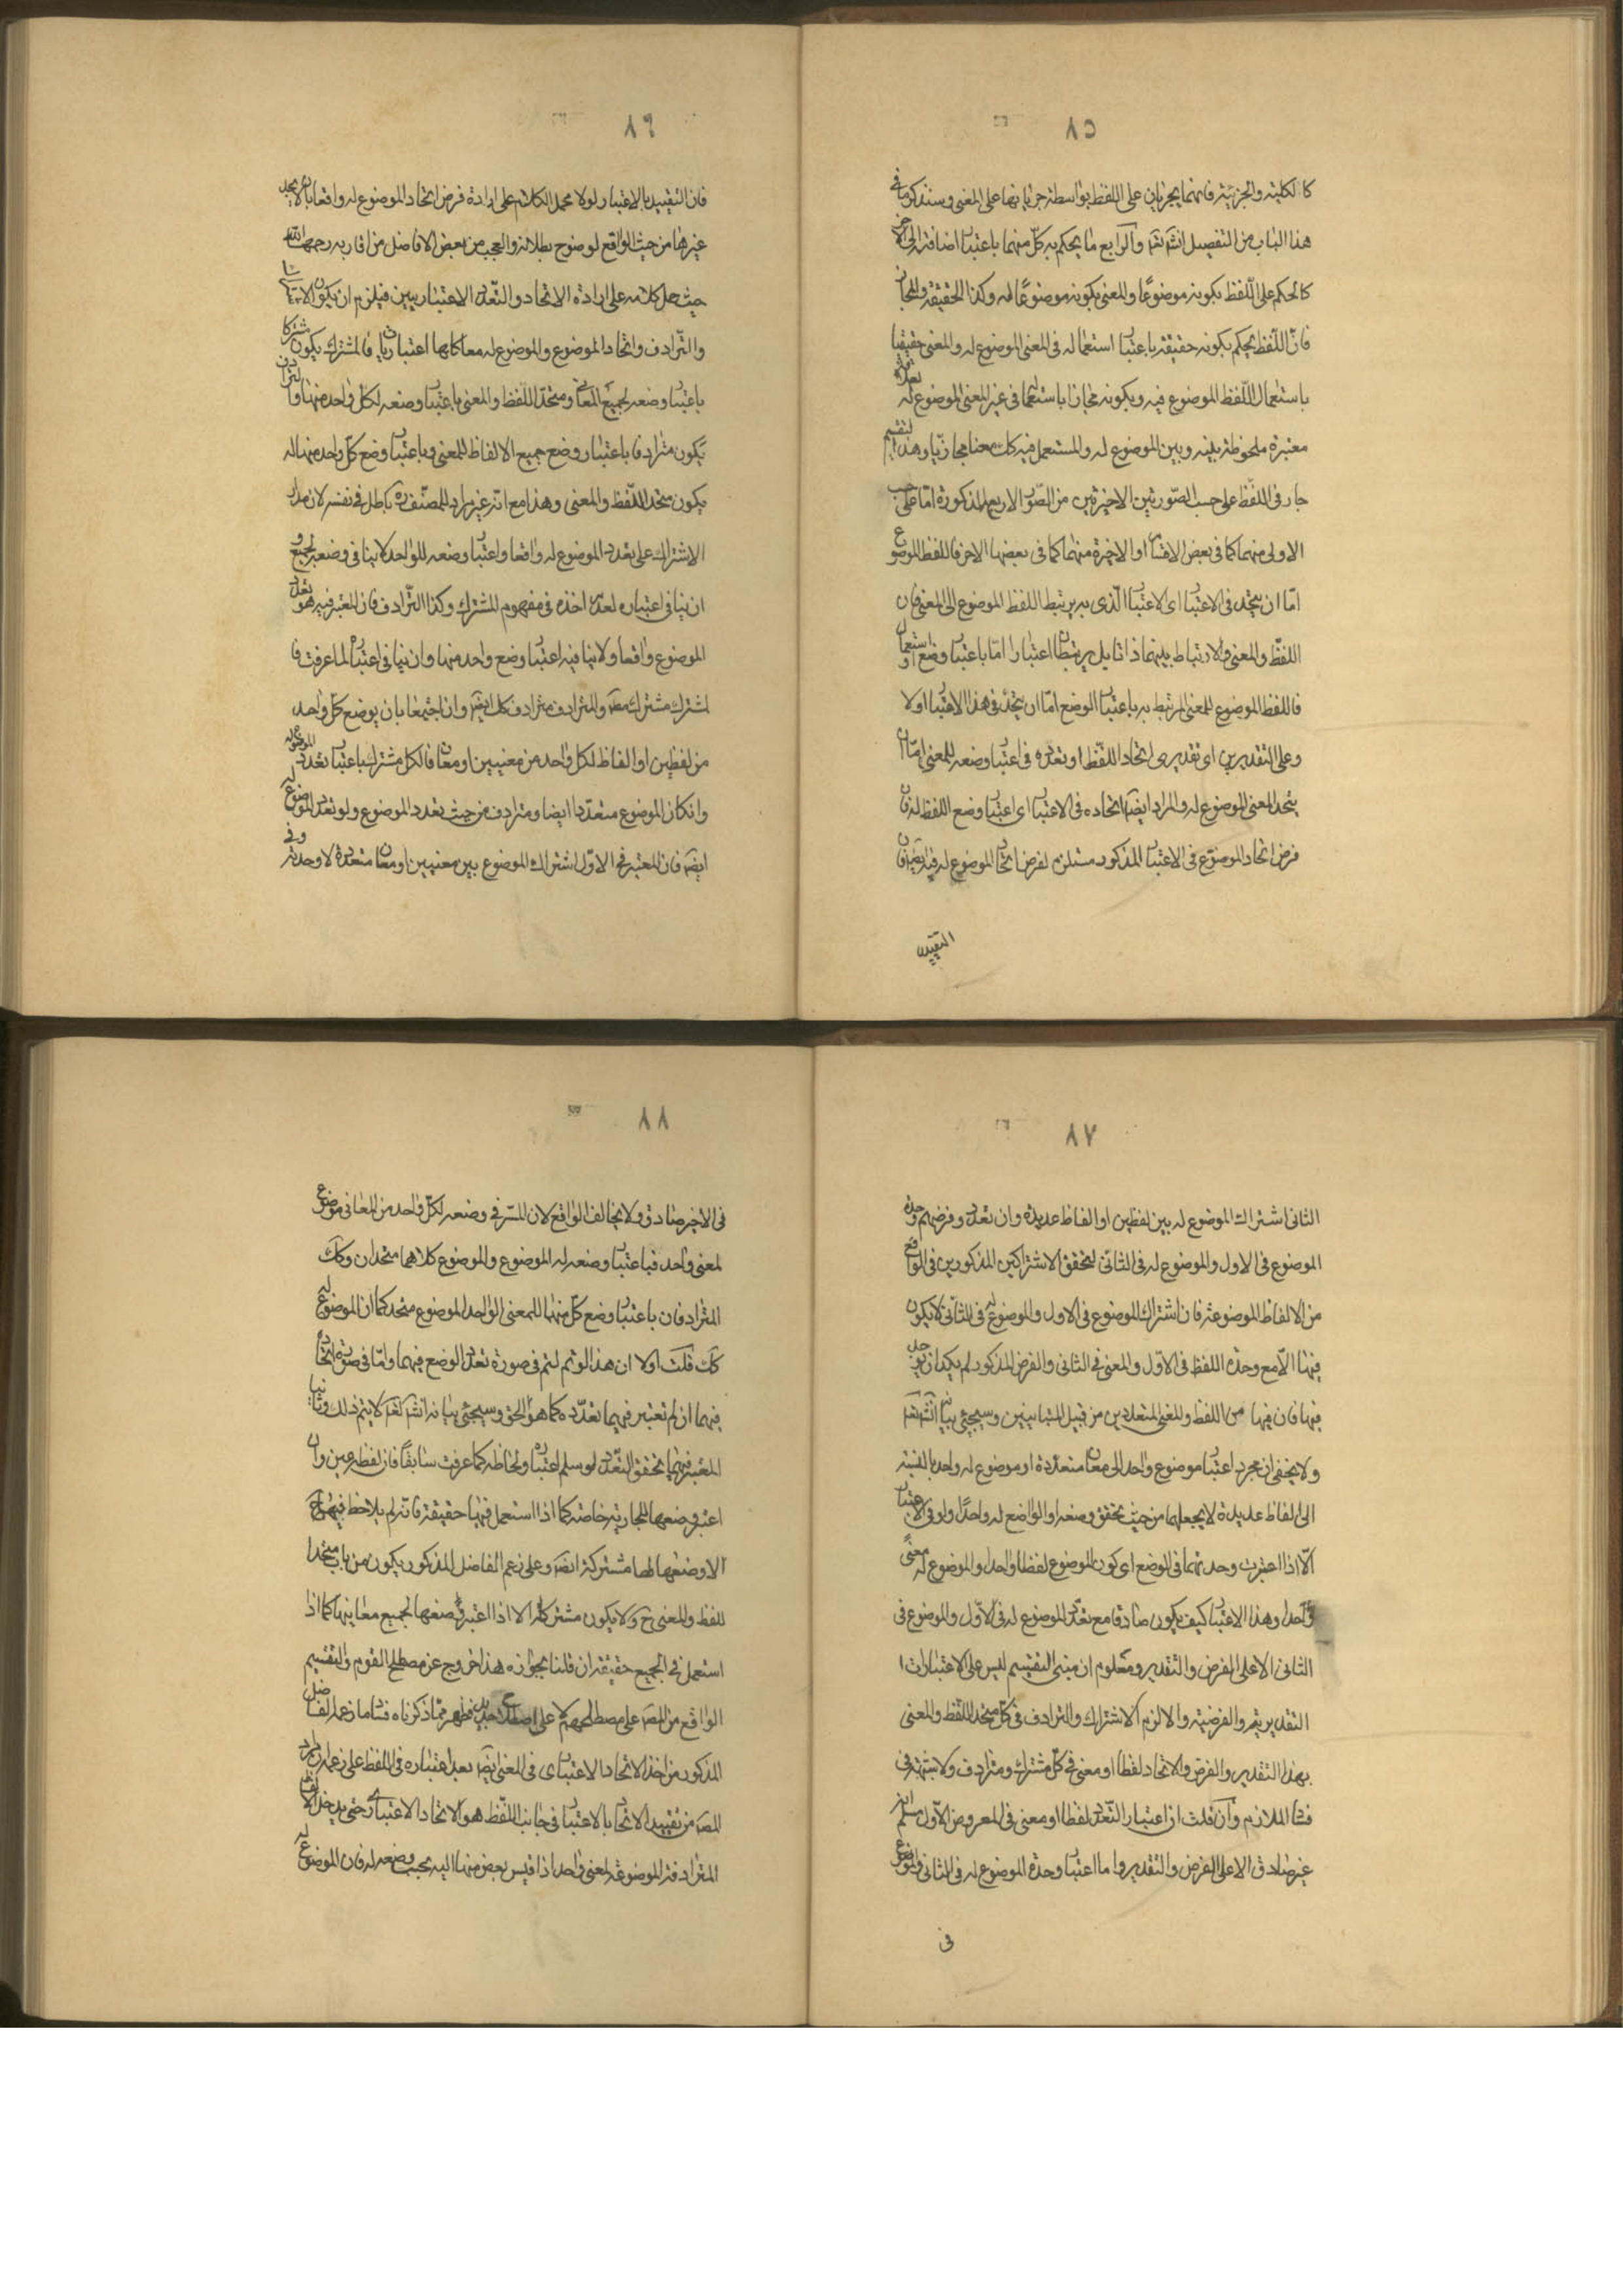 ٨٥
كالكلية والجزئية فانهما يجريان على اللفظ بواسطة جريانها على المعنى وسنذكر ما فى
هذا الباب من التفصيل انشہ تعہ والرابع ما يحكم به كل منهما باعتبار اضافته الى الاخر
كالحكم على اللفظ بكونه موضوعًا والمعنى بكونه موضوعًا له وكذا الحقيقة والمجاز
فانّ اللفظ يحكم بكونه حقيقة باعتبار استعماله فى المعنى الموضوع له والمعنى حقيقيا
باستعمال اللّفظ الموضوع فيه وبكونه مجازا باستعماله فى غير المعنى الموضوع له لعلاقة
معتبرة ملحوظة بينه وبين الموضوع له والمستعمل فيه كك معنا مجازيّا وهذا التقسيم
جار فى اللفظ على حسب الصّورتين الاخيرتين من الصّور الاربع المذكورة امّا على حسب
الاولى منهما كما فى بعض الاقسام او الاخيرة منهما كما فى بعضها الاخر فاللفظ الموضوع
امّا ان يتحد فى الاعتبار اى الاعتبار الّذى به يرتبط اللفظ الموضوع الى المعنى فان
اللفّظ والمعنى لا ارتباط بينهما ذاتا بل يرتبطان اعتبارا امّا باعتبار وضع او استعمال
فاللفظ الموضوع للمعنى المرتبط به باعتبار الوضع امّا ان يتحد فى هذا الاعتبار اولا
وعلى التقديرين اى تقديرى اتحاد اللّفظ او تعدده فى اعتبار وضعه للمعنى امّا ان
يتحد المعنى الموضوع له والمراد ايضا اتحاده فى الاعتبار اى اعتبار وضع اللفظ له فان
فرض اتحاد الموضوع فى الاعتبار المذكور مستلزم لفرض اتحاد الموضوع له فيه ايضا فان
التقييد
٨٦
فان التقييد بالاعتبار لولا محمد الكلام على ارادة فرض اتحاد الموضوع له واقعا بان لا يجد
غيرها من حيث الواقع لوضوح بطلانه والعجب من بعض الافاضل من اقاربه رحمهما الله
حيث حمل كلامه على ارادة الاتحاد والتّعدد الاعتباريين فيلزم ان يكون الاشتراك
والتّرادف واتحاد الموضوع والموضوع له معا كلها اعتباريان فالمشترك يكون مشتركا
باعتبار وضعه لجميع المعانى ومتحد اللفظ والمعنى باعتبار وضعه لكل واحد منها والترادف
يكون مترادفا باعتبار وضع جميع الالفاظ للمعنى وباعتبار وضع كل واحد منها له
يكون متحد اللّفظ والمعنى وهذا مع انّه غير مراد للمصنّف ره باطل فى نفسه لان مدار
الاشتراك على تعدد الموضوع له واقعا واعتبار وضعه للواحد لا ينافى وضعه لجميع و
ان ينافى اعتباره لعدم اخذه فى مفهوم المشترك وكذا الترادف فان المعتبر فيه هو تعدد
الموضوع واقعا ولا ينافيه اعتبار وضع واحد منها وان ينافى اعتباره لما عرفت فا
لمشترك مشترك مطہ والمترادف مترادف كك ايضہ وان اجتمعا بان يوضع كل واحد
من لفظين او الفاظ لكل واحد من معنيين او معان فالكل مشترك باعتبار تعدد الموضوع له
وانكان الموضوع متعدّدا ايضا ومترادف من حيث تعدد الموضوع ولو تعدد الموضوع له
ايضہ فان المعتبر فى الاوّل اشتراك الموضوع بين معنيين او معان متعددة لا وحدته وفى
٨٧
الثانى اشتراك الموضوع له بين لفظين او الفاظ عديدة وان تعدد وفرضهم وحدة
الموضوع فى الاول والموضوع له فى الثانى لتحقق الاشتراكين المذكورين فى الواقع
من الالفاظ الموضوعة فان اشتراك الموضوع فى الاول والموضوع له فى الثانى لا يكون
فيها الّا مع وحدة اللفظ فى الاوّل والمعنى فى الثانى والفرض المذكور لم يكد ان يوجد
فيها فان فيها من اللفظ والمعنى المتعددين من قبيل المتباينين وسيجئ بيانه انشہ تعہ
ولا يخفى ان مجرد اعتبار موضوع واحد الى معان متعددة او موضوع له واحد بالنسبة
الى الفاظ عديدة لا يجعلهما من حيث تحقق وضعه او الواضع له واحدًا ولو فى الاعتبار
الّا اذا اعتبرت وحدتهما فى الوضع اى كون الموضوع لفظا واحدا والموضوع له معنًى
واحدا وهذا الاعتبار كيف يكون صادقا مع تعدد الموضوع له فى الاوّل والموضوع فى
الثانى الا على الفرض والتقدير ومعلوم ان مبنى التقسيم ليس على الاعتبارات ا
التقديريّة والفرضية والا لزم الاشتراك والترادف فى كل متحد اللفظ والمعنى
بهذا التقدير والفرض والاتحاد لفظا او معنى فى كلّ مشترك ومترادف ولا شبهة فى
فساد اللازم وان قلت ان اعتبار التّعدد لفظا او معنى فى المعروض الاوّل مسلم انه
غير صادق الا على الفرض والتقدير واما اعتبار وحدة الموضوع له فى الثانى والموضوع
فى
٨٨
فى الاخر صادق ولا يخالف الواقع لان المشترك فى وضعه لكلّ واحد من المعانى موضوع
لمعنى واحد فباعتبار وضعه له الموضوع والموضوع كلاهما متحدان وكك
المترادفان باعتبار وضع كلّ منهما للمعنى الواحد الموضوع متحد كما ان الموضوع له
كك قلت اولا ان هذا الوتم لتم فى صورة تعدد الوضع فيهما وامّا فى صورة اتحاد
فيهما ان لم تعتبر فيهما تعدّده كما هو الحق وسيجئ بيانه انشہ تعہ لا يتم ذلك وثانيا
المعتبر فيهما تحقق التعدّد لو سلم اعتباره ولحاظه كما عرفت سابقًا فان لفظه عين وان
اعتبر وضعها للجارية خاصة كما اذا استعمل فيها حقيقة فانه لم يلاحظ فيه ح
الا وضعها لها مشتركة ايضہ وعلى زعم الفاضل المذكور يكون من باب متحد ا
للفظ والمعنى ح ولا يكون مشتركا الا اذا اعتبر وضعها لجميع معانيها كما اذا
استعمل فى الجميع حقيقة ان قلنا بجوازه هذا خروج عن مصطلح القوم والتقسيم
الواقع من المصہ على مصطلحهم لا على اصطلاح جديد فظهر مما ذكرناه فساد ما زعمه الفاضل
المذكور من اخذ الاتحاد الاعتبارى فى المعنى ايضہ بعد اعتباره فى اللفظ على زعمه ان مراد
المصہ من تقييد الاتحاد بالاعتبار فى جانب اللّفظ هو الاتحاد الاعتبارى حتى يدخل الالفاظ
المترادفة الموضوعة لمعنى واحد اذا قيس بعض منها اليه بحسب وضعه له فان الموضوع له